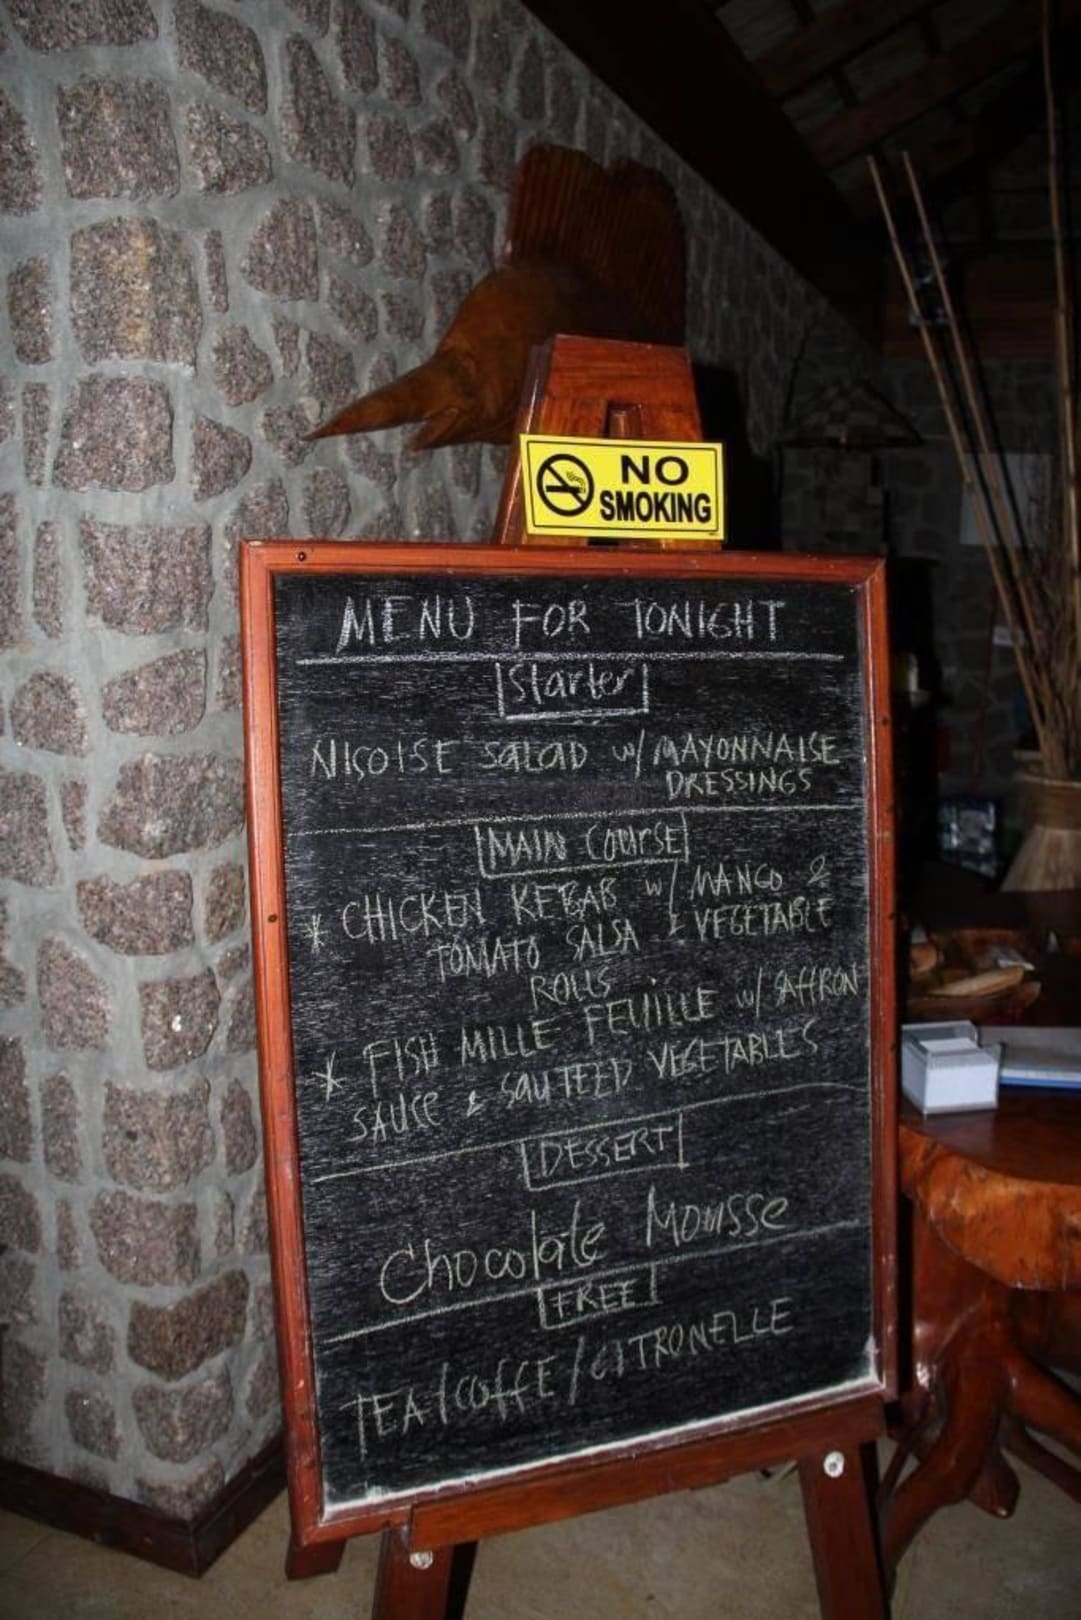 NO
SMOKING
MENU FOR TONIGHT
Starter
NICOISE SALAD w/ MAYONNAISE
DRESSINGS
MAIN COURSE
* CHICKEN KEBAB w/ MANGO &
TOMATO SALSA & VEGETABLE
ROLLS
* FISH MILLE FEUILLE w/ SAFFRON
SAUCE & SAUTEED VEGETABLES
DESSERT
Chocolate Mousse
FREE
TEA/COFFE/CITRONELLE